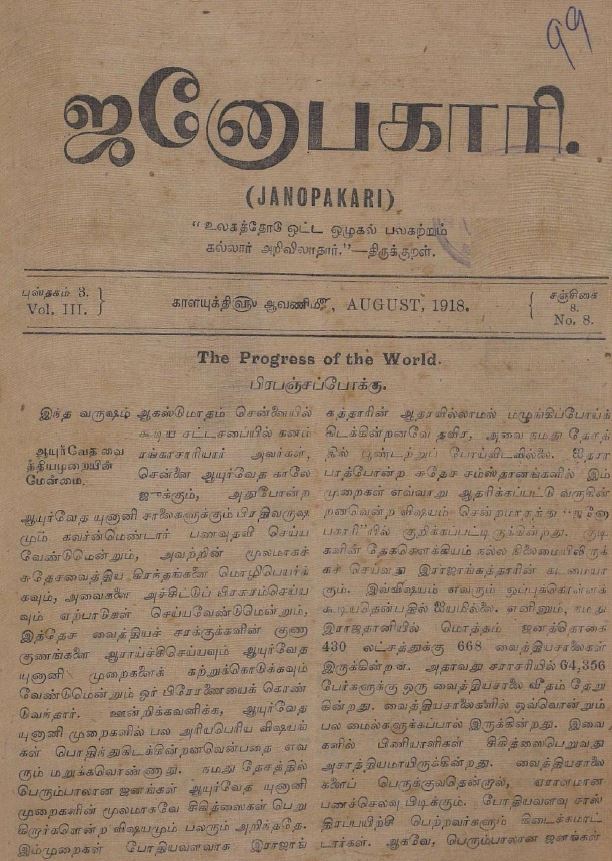 99
ஜனோபகாரி.
(JANOPAKARI)
“உலகத்தோடு ஒட்ட ஒழுகல் பலகற்றும்
கல்லார் அறிவிலாதார்.”—திருக்குறள்.
புஸ்தகம் 3.
Vol. III.
காளயுக்தி௵ ஆவணி௴, AUGUST, 1918.
சஞ்சிகை
8.
No. 8.
The Progress of the World.
பிரபஞ்சப்போக்கு.
இந்த வருஷம் ஆகஸ்டுமாதம் சென்னையில்
கூடிய சட்டசபையில் கனம்
ஆயுர்வேத வை
த்தியமுறையின்
மேன்மை.
ரங்காசாரியார் அவர்கள்,
சென்னை ஆயுர்வேத காலே
ஜுக்கும், அதுபோன்ற
ஆயுர்வேத யுனானி சாலைகளுக்கும் பிரதிவருஷ
மும் கவர்ன்மெண்டார் பணவுதவி செய்ய
வேண்டுமென்றும், அவற்றின் மூலமாகச்
சுதேசவைத்திய கிரந்தங்களை மொழிபெயர்க்
கவும், அவைகளை அச்சிட்டுப் பிரசுரம்செய்ய
வும் ஏற்பாடுகள் செய்யவேண்டுமென்றும்,
இத்தேச வைத்தியச் சரக்குக்களின் குணா
குணங்களை ஆராய்ச்சிசெய்யவும் ஆயுர்வேத
யுனானி முறைகளைக் கற்றுக்கொடுக்கவும்
வேண்டுமென்றும் ஓர் பிரேரணையைக் கொண்
டுவந்தார். ஊன்றிக்கவனிக்க, ஆயுர்வேத
யுனானி முறைகளில் பல அரியபெரிய விஷயங்
கள் பொதிந்துகிடக்கின்றனவென்பதை எவ
ரும் மறுக்கவொண்ணாது. நமது தேசத்தில்
பெரும்பாலான ஜனங்கள் ஆயுர்வேத யுனானி
முறைகளின் மூலமாகவே சிகித்ஸைகள் பெறு
கிறார்களென்ற விஷயமும் பலரும் அறிந்ததே.
இம்முறைகள் போதியளவாக இராஜாங்
கத்தாரின் ஆதரவில்லாமல் மழுங்கிப்போய்க்
கிடக்கின்றனவே தவிர, அவை நமது தேசத்
தில் பூண்டற்றுப் போய்விடவில்லை. ஐதரா
பாத்போன்ற சுதேச சமஸ்தானங்களில் இம்
முறைகள் எவ்வாறு ஆதரிக்கப்பட்டு வருகின்
றனவென்ற விஷயம் சென்றமாதத்து “ஜனோ
பகாரி”யில் குறிக்கப்பட்டிருக்கின்றது. குடி
களின் தேகசௌக்கியம் நல்ல நிலைமையிலிருக்
கச் செய்வது இராஜாங்கத்தாரின் கடமையா
கும். இவ்விஷயம் எவரும் ஒப்புக்கொள்ளக்
கூடியதென்பதில் ஐயமில்லை. எனினும், நமது
இராஜதானியில் மொத்தம் ஜனத்தொகை
430 லட்சத்துக்கு 668 வைத்தியசாலைகள்
இருக்கின்றன. அதாவது சராசரியில் 64,356
பேர்களுக்கு ஒரு வைத்தியசாலை வீதம் தேறு
கின்றது. வைத்தியசாலைகளில் ஒவ்வொன்றும்
பல மைல்களுக்கப்பால் இருக்கின்றது. இவை
களில் பிணியாளிகள் சிகித்ஸைபெறுவது
அசாத்தியமாயிருக்கின்றது. வைத்தியசாலை
களைப் பெருக்குவதென்றால், ஏராளமான
பணச்செலவு பிடிக்கும். போதியவளவு சாஸ்
திரப்பயிற்சி பெற்றவர்களும் கிடைக்கமாட்
டார்கள். ஆகவே, பெரும்பாலான ஜனங்கள்